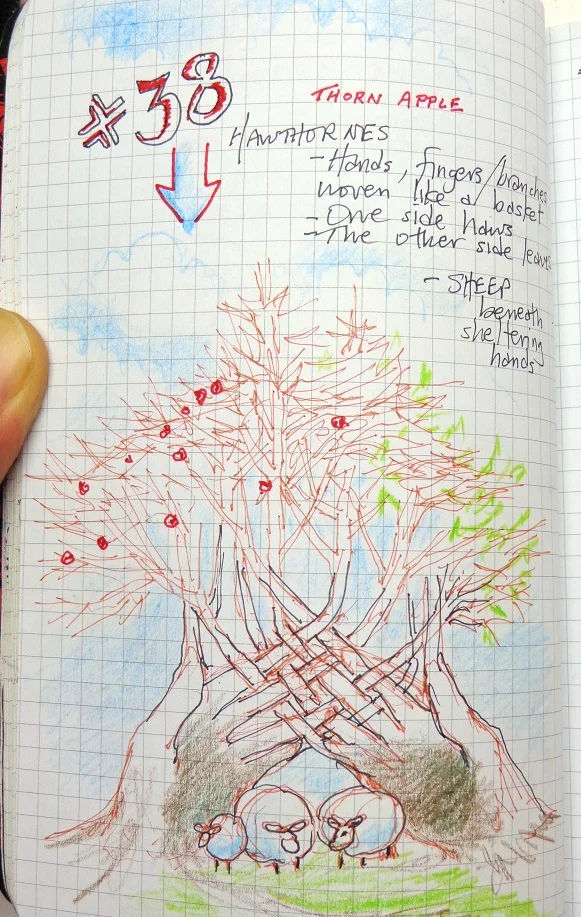 #38
THORN APPLE
HAWTHORNES
- Hands, fingers/branches
woven like a basket
- One side haws
- The other side leaves
- SHEEP
beneath
sheltering
hands